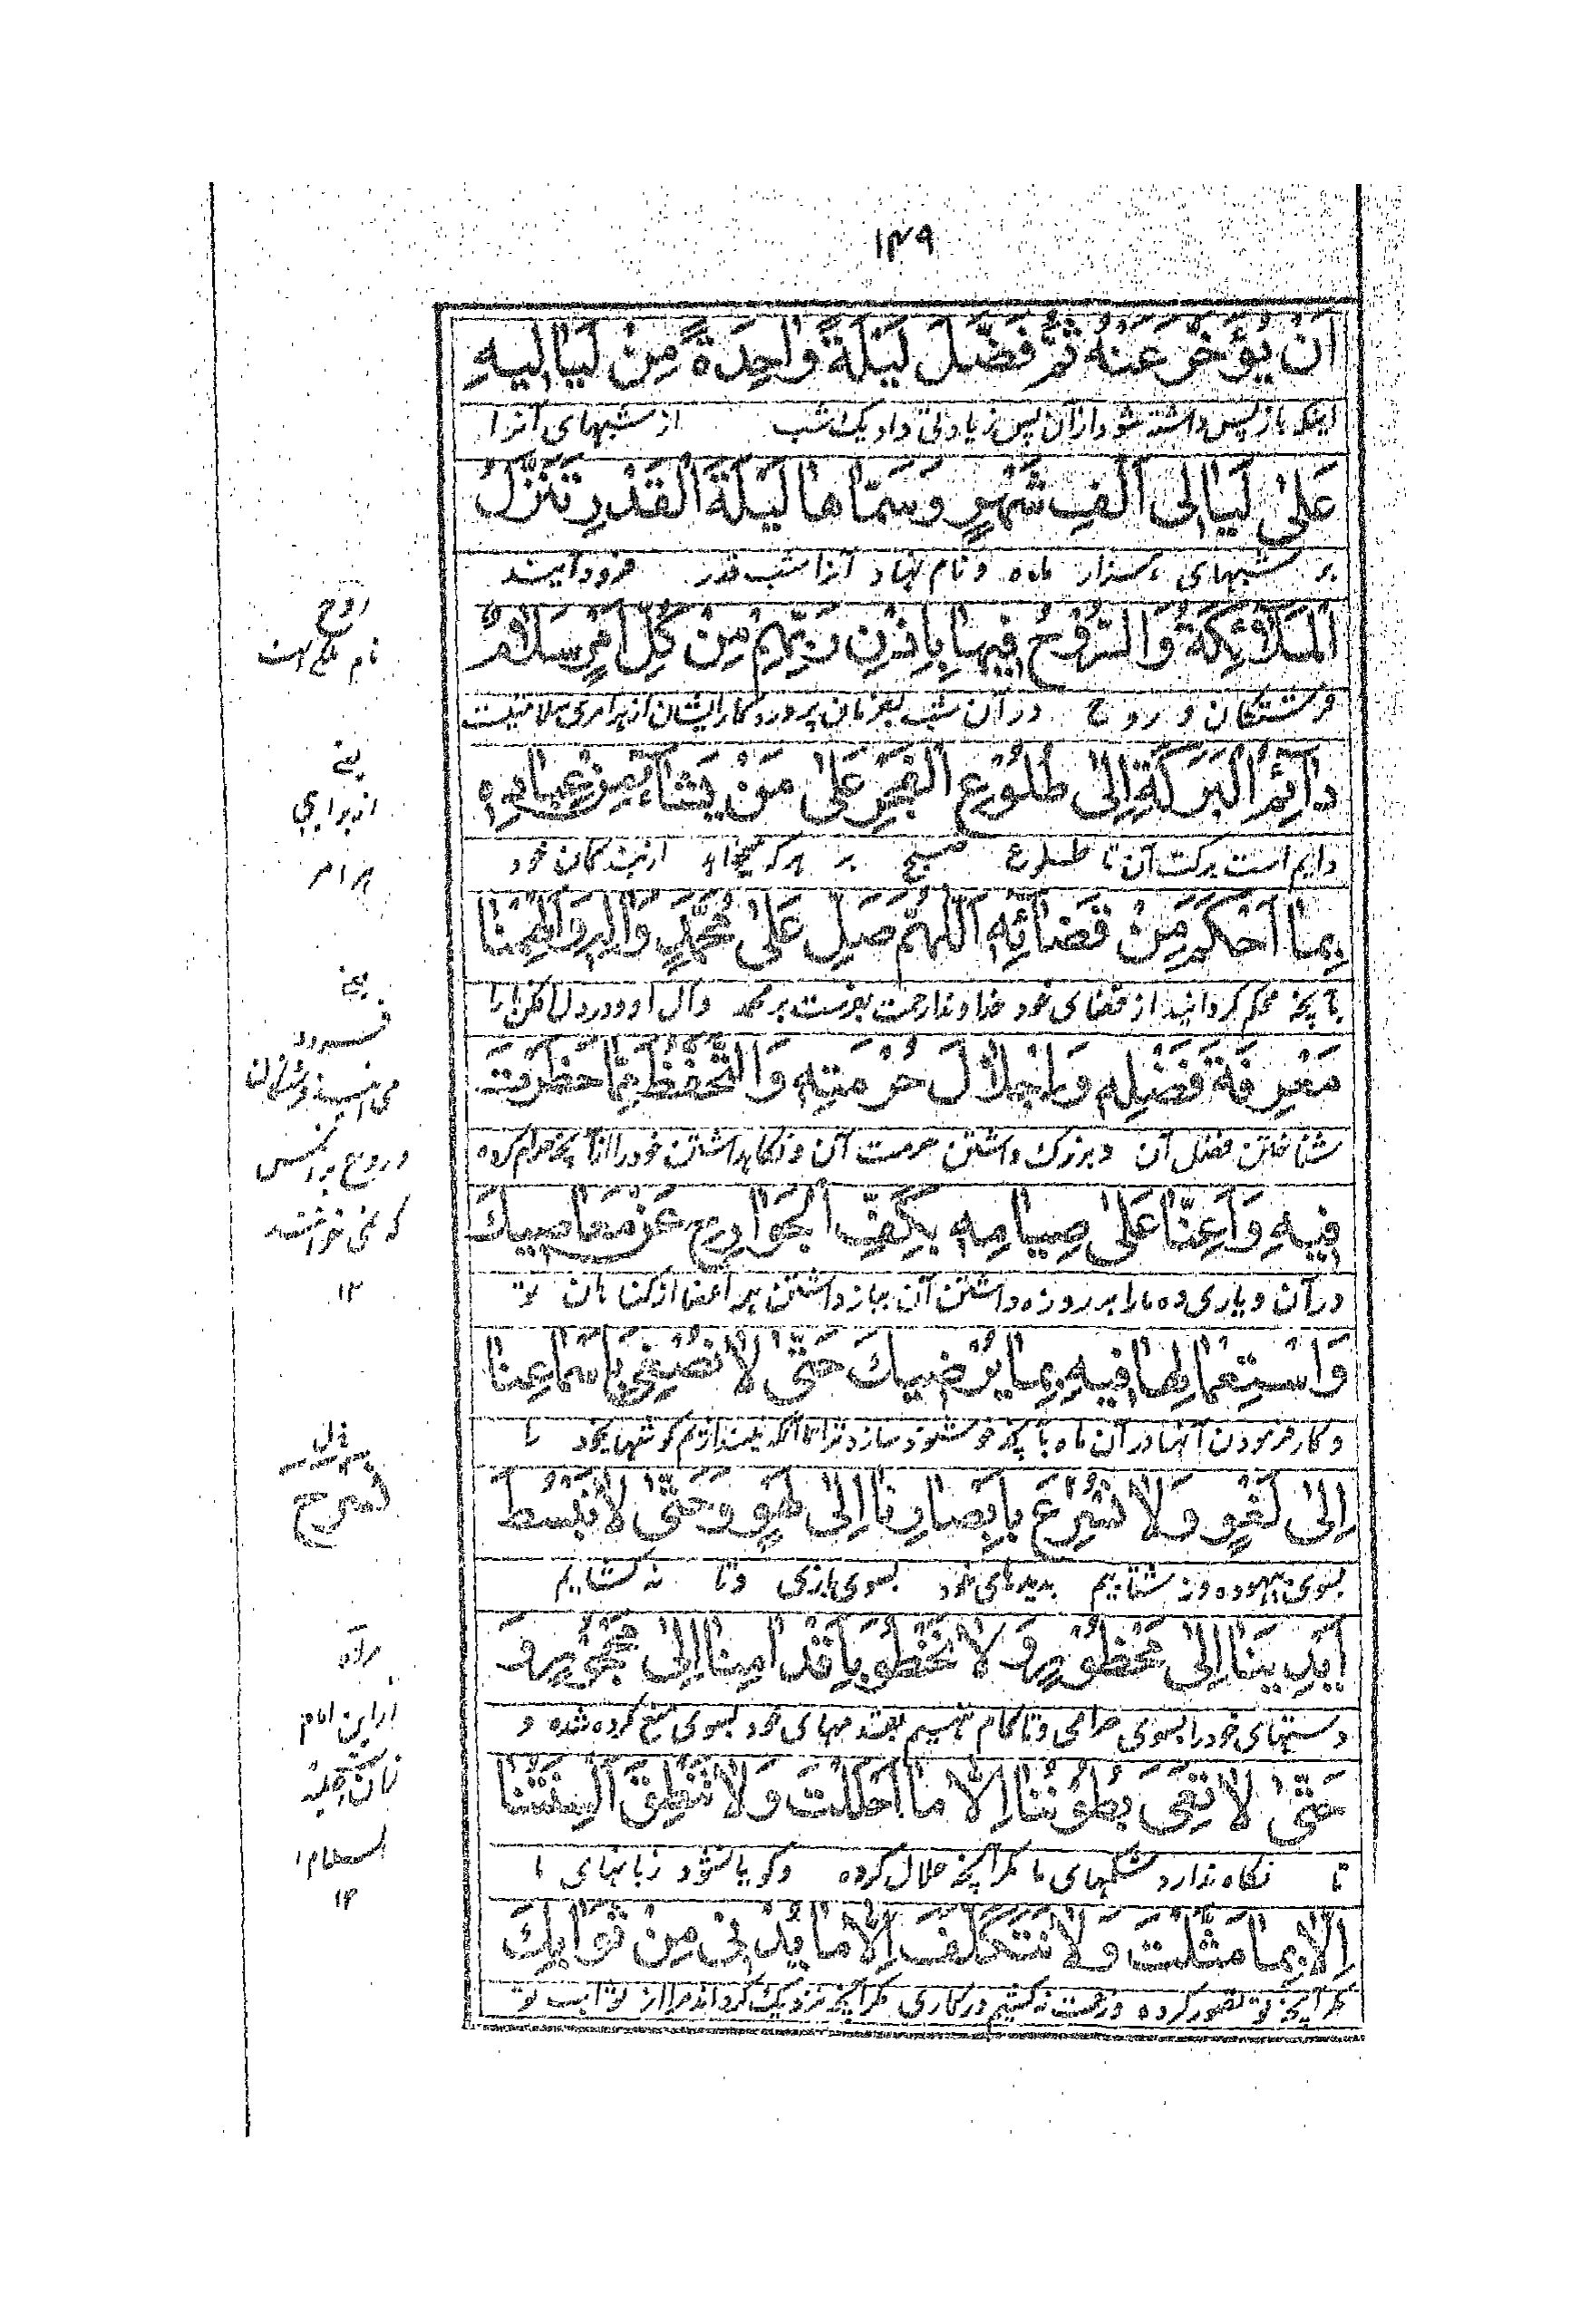 ۱۴۹
اَنْ يُؤَخَّرَ عَنْهُ ثُمَّ فَضَّلَ لَيْلَةً وَاحِدَةً مِنْ لَيَالِيهِ
اینکه باز پس داشته شود ازآن پس زیادتی داد یک شب از شبهای آنرا
عَلىٰ لَيَالِى اَلْفِ شَهْرٍ وَسَمَّاهَا لَيْلَةَ الْقَدْرِ تَنَزَّلُ
بر شبهای هزار ماه و نام نهاد آنرا شب قدر فرود آیند
الْمَلَائِكَةُ وَالرُّوْحُ فِيهَا بِاِذْنِ رَبِّهِمْ مِنْ كُلِّ اَمْرٍ سَلَامٌ
فرشتگان و روح در آن شب بفرمان پروردگار ایشان از هر امری سلامیست
دَائِمُ الْبَرَكَةِ اِلىٰ طُلُوْعِ الْفَجْرِ عَلىٰ مَنْ يَشَاءُ مِنْ عِبَادِهِ
دایم است برکت آن تا طلوع صبح بر هر که میخواهد از بندگان خود
بِمَا اَحْكَمَ مِنْ قَضَائِهِ اَللّٰهُمَّ صَلِّ عَلىٰ مُحَمَّدٍ وَاٰلِهِ وَاَلْهِمْنَا
بآنچه محکم گردانید از قضای خود خداوندا رحمت بفرست بر محمد وآل او ودر دل افکن ما را
مَعْرِفَةَ فَضْلِهِ وَاِجْلَالَ حُرْمَتِهِ وَالتَّحَفُّظَ مِمَّا حَظَرْتَ
شناختن فضل آن و بزرگ داشتن حرمت آن و نگاهداشتن خود را ازآنچه حرام کرده
فِيهِ وَاَعِنَّا عَلىٰ صِيَامِهِ بِكَفِّ الْجَوَارِحِ عَنْ مَعَاصِيكَ
در آن و یاری ده ما را بر روزه داشتن آن بباز داشتن همه اعضا از گناهان تو
وَاسْتِعْمَالِهَا فِيهِ بِمَا يُرْضِيكَ حَتّٰى لَا نُصْغِىَ بِاَسْمَاعِنَا
و کار فرمودن آنها در آن ماه بآنچه خوشنود سازد ترا تا آنکه نیندازیم گوشهای خود را
اِلىٰ لَغْوٍ وَلَا نُسْرِعَ بِاَبْصَارِنَا اِلىٰ لَهْوٍ وَحَتّٰى لَا نَبْسُطَ
بسوی بیهوده و نه شتابیم بدیدهای خود بسوی بازی وتا نه گشاییم
اَيْدِيَنَا اِلىٰ مَحْظُوْرٍ وَ لَا نَخْطُوَ بِاَقْدَامِنَا اِلىٰ مَحْجُوْرٍ وَ
دستهای خود را بسوی حرامی وتا گام ننهیم بقدمهای خود بسوی منع کرده شده و
حَتّٰى لَا تَعِىَ بُطُوْنُنَا اِلَّا مَا اَحْلَلْتَ وَلَا تَنْطِقَ اَلْسِنَتُنَا
تا نگاه ندارد شکمهای ما مگر آنچه حلال کرده وگویا نشود زبانهای ما
اِلَّا بِمَا مَثَّلْتَ وَلَا نَتَكَلَّفَ اِلَّا مَا يُدْنِى مِنْ ثَوَابِكَ
مگر آنچه تو تصور کرده وزحمت نه کشیم در کاری مگر آنچه نزدیک گرداند مرا از ثواب تو
روح
نام ملکی است
یعنے
از برای
هر امر
یعنے
فرود
می آیند فرشتگان
و روح بر آنکس
که می خواهد
۱۲
نسرح
مراد
از این امام
زمان
السلام
۱۲